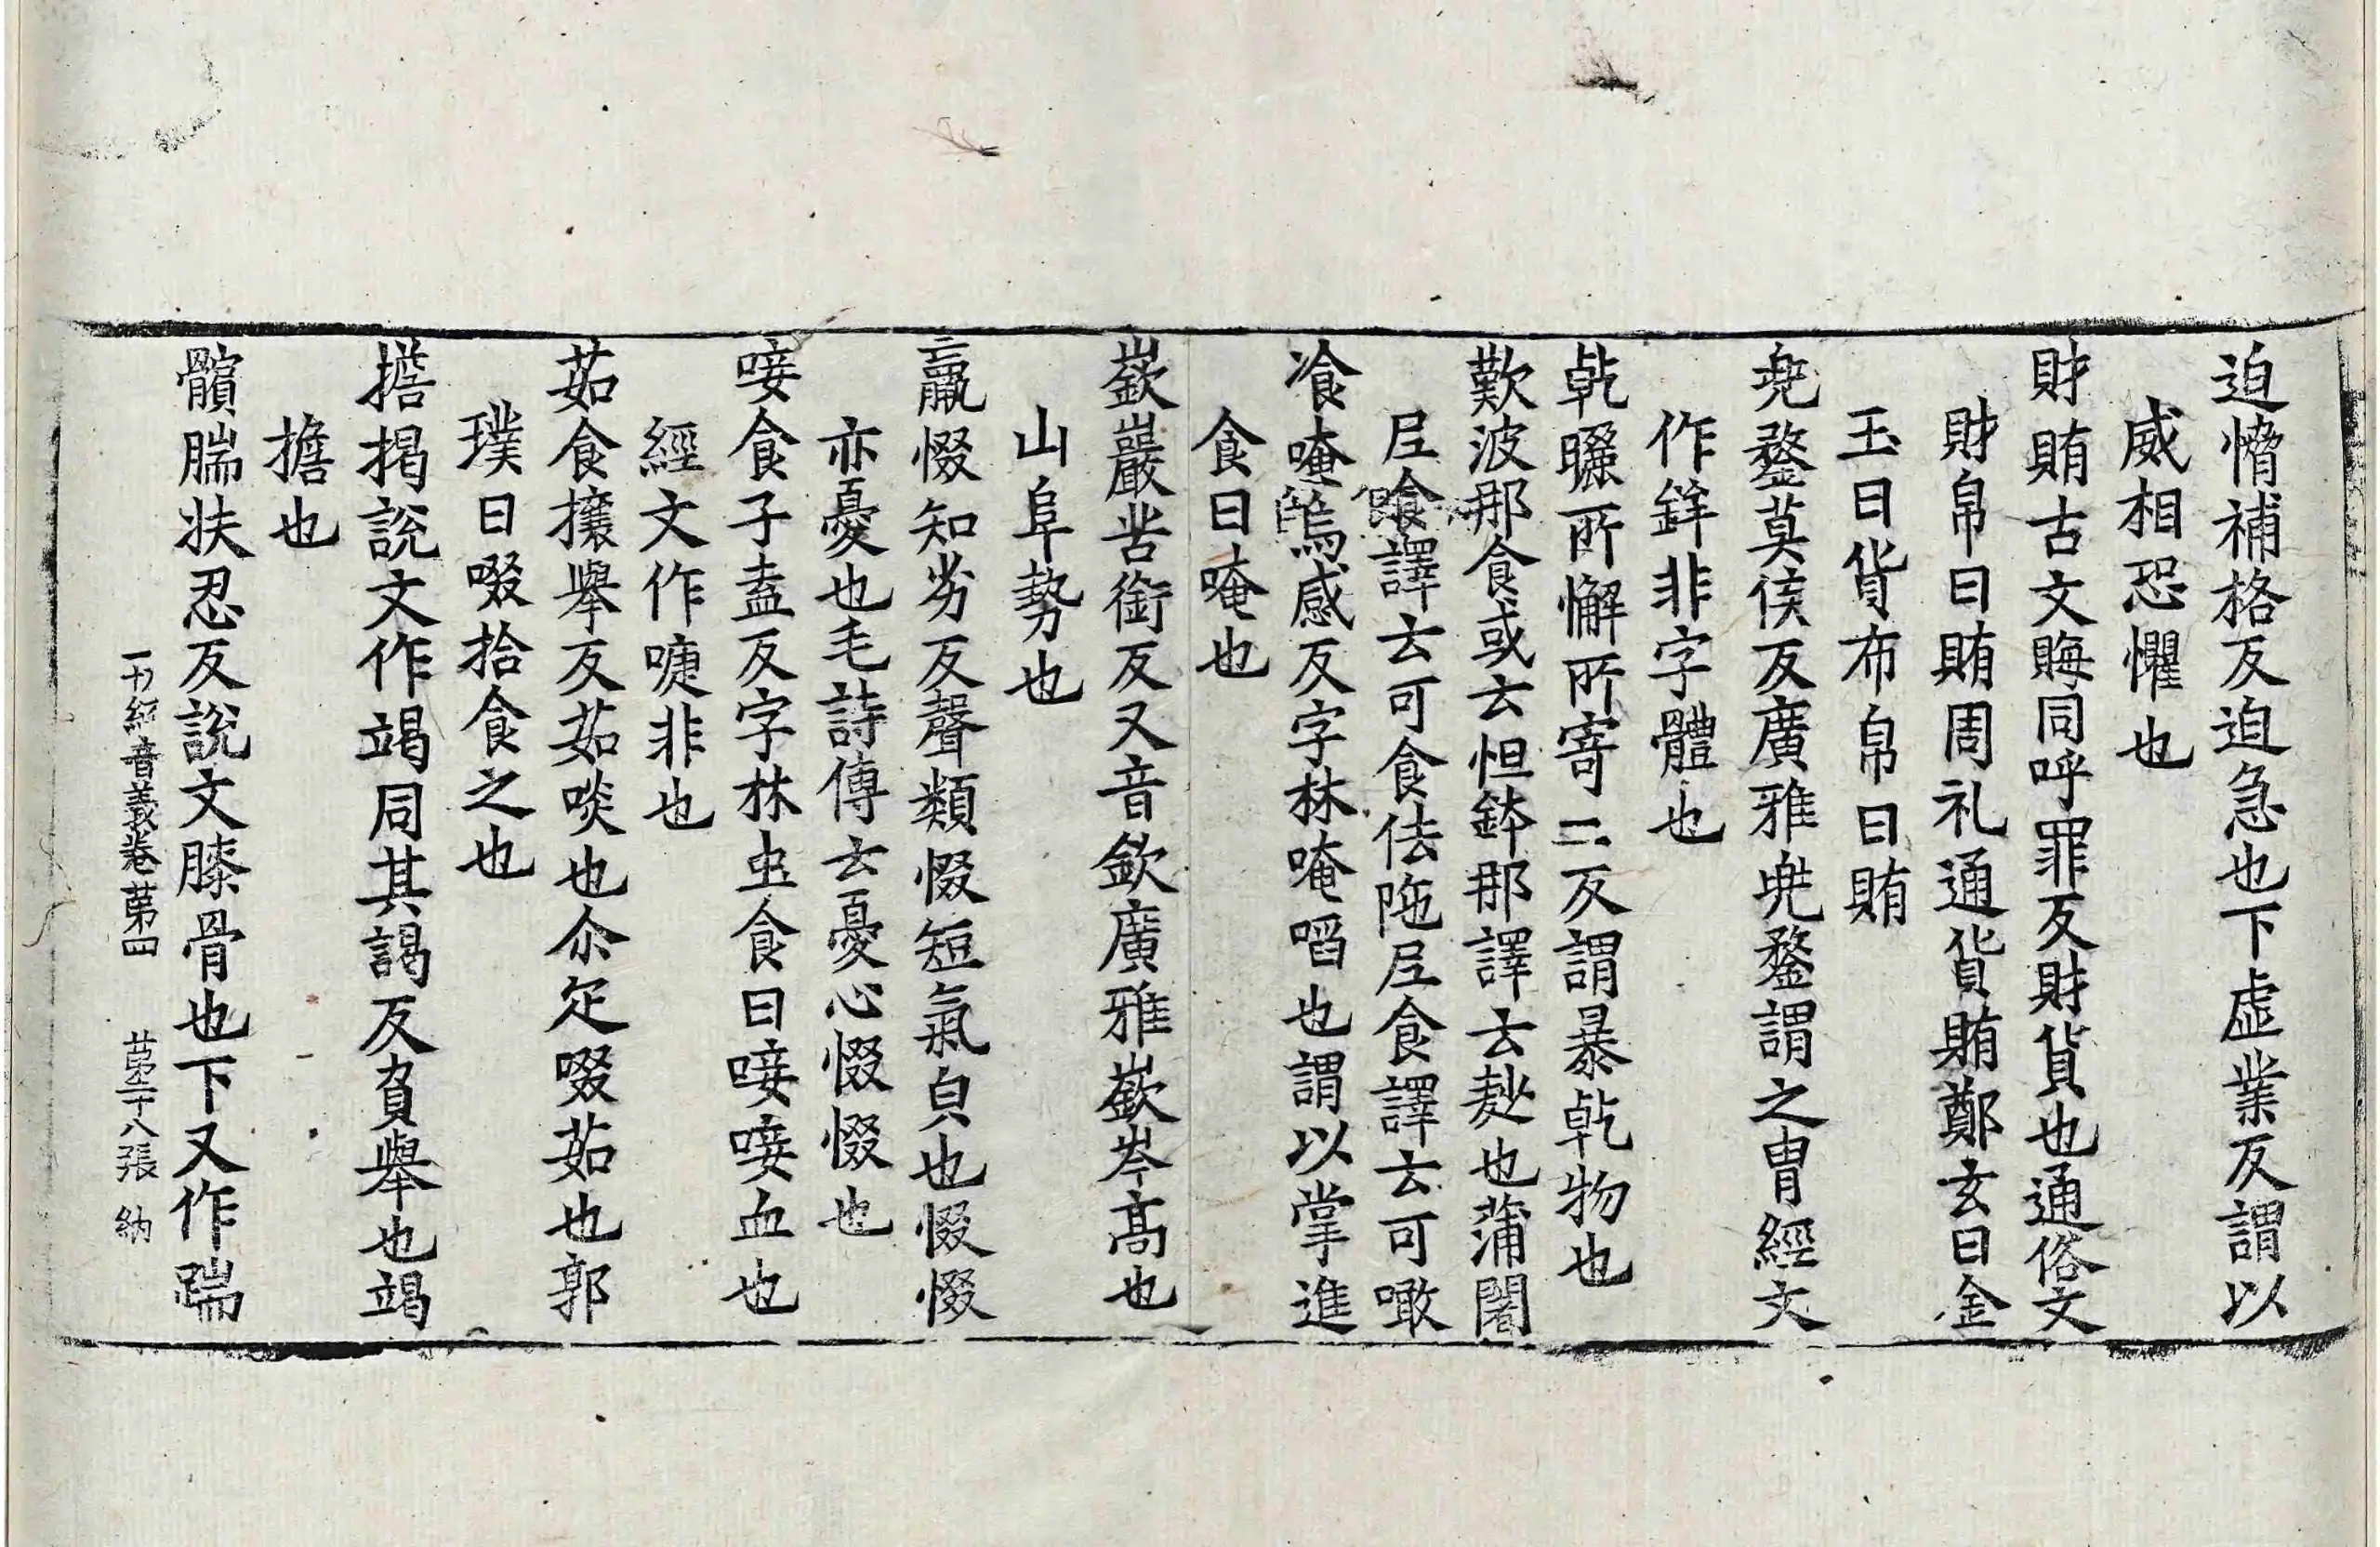 迫愶補格反迫急也下虛業反謂以
威相恐懼也
財賄古文賄同呼罪反財貨也通俗文
財帛曰賄周礼通貨賄鄭玄曰金
玉曰貨布帛曰賄
兠鍪莫侯反廣雅兠鍪謂之冑經文
作鉾非字體也
乹曬所懈所寄二反謂暴乹物也
歎波那食或云怛鉢那譯云麨也蒲闍
尼飡譯云可食佉陁尼食譯云可噉
飡唵烏感反字林唵㗖也謂以掌進
食曰唵也
嶔巖苦銜反又音欽廣雅嶔岑高也
山阜勢也
羸惙知劣反聲類惙短氣皃也惙惙
亦憂也毛詩傳云憂心惙惙也
唼食子盍反字林虫食曰唼唼血也
經文作啑非也
茹食攘舉反茹啖也尒疋啜茹也郭
璞曰啜拾食之也
擔揭說文作竭同其謁反負舉也竭
擔也
髕腨扶忍反說文膝骨也下又作踹
一切經音義卷苐四 苐二十八張 納